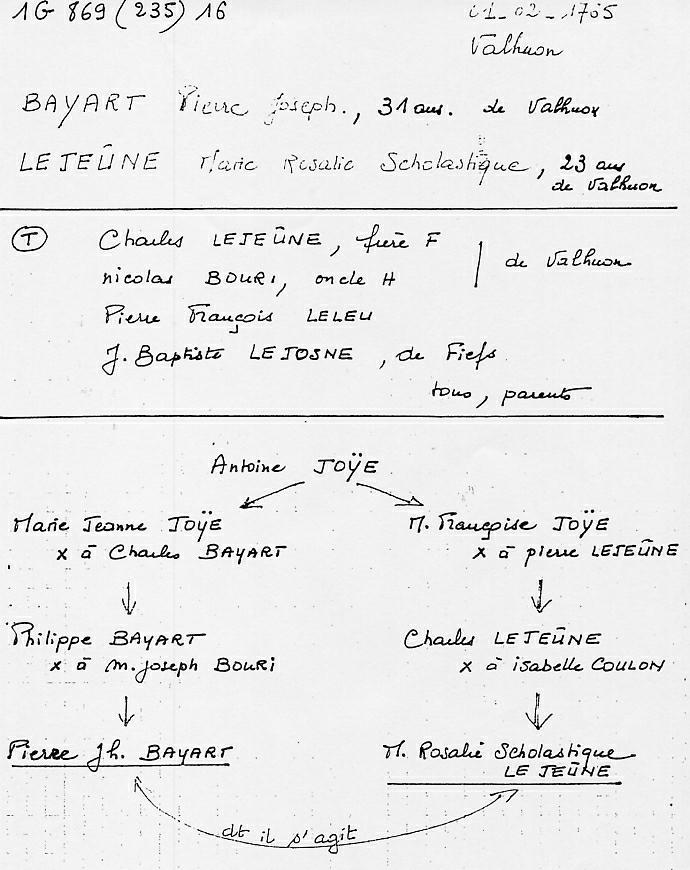 1G 869 (235) 16
01-02-1765
Valhuon
BAYART Pierre Joseph., 31 ans. de Valhuon
LEJEÛNE Marie Rosalie Scholastique, 23 ans
de Valhuon
T Charles LEJEÛNE, frère F
nicolas BOURI, oncle H
de Valhuon
Pierre François LELEU
J. Baptiste LEJOSNE, de Fiefs
tous, parents
Antoine JOŸE
Marie Jeanne JOŸE
x à Charles BAYART
M. Françoise JOŸE
x à pierre LEJEÛNE
Philippe BAYART
x à m. joseph BOURI
Charles LEJEÛNE
x à isabelle COULON
Pierre Jh. BAYART
M. Rosalie Scholastique
LE JEÛNE
dt il s'agit